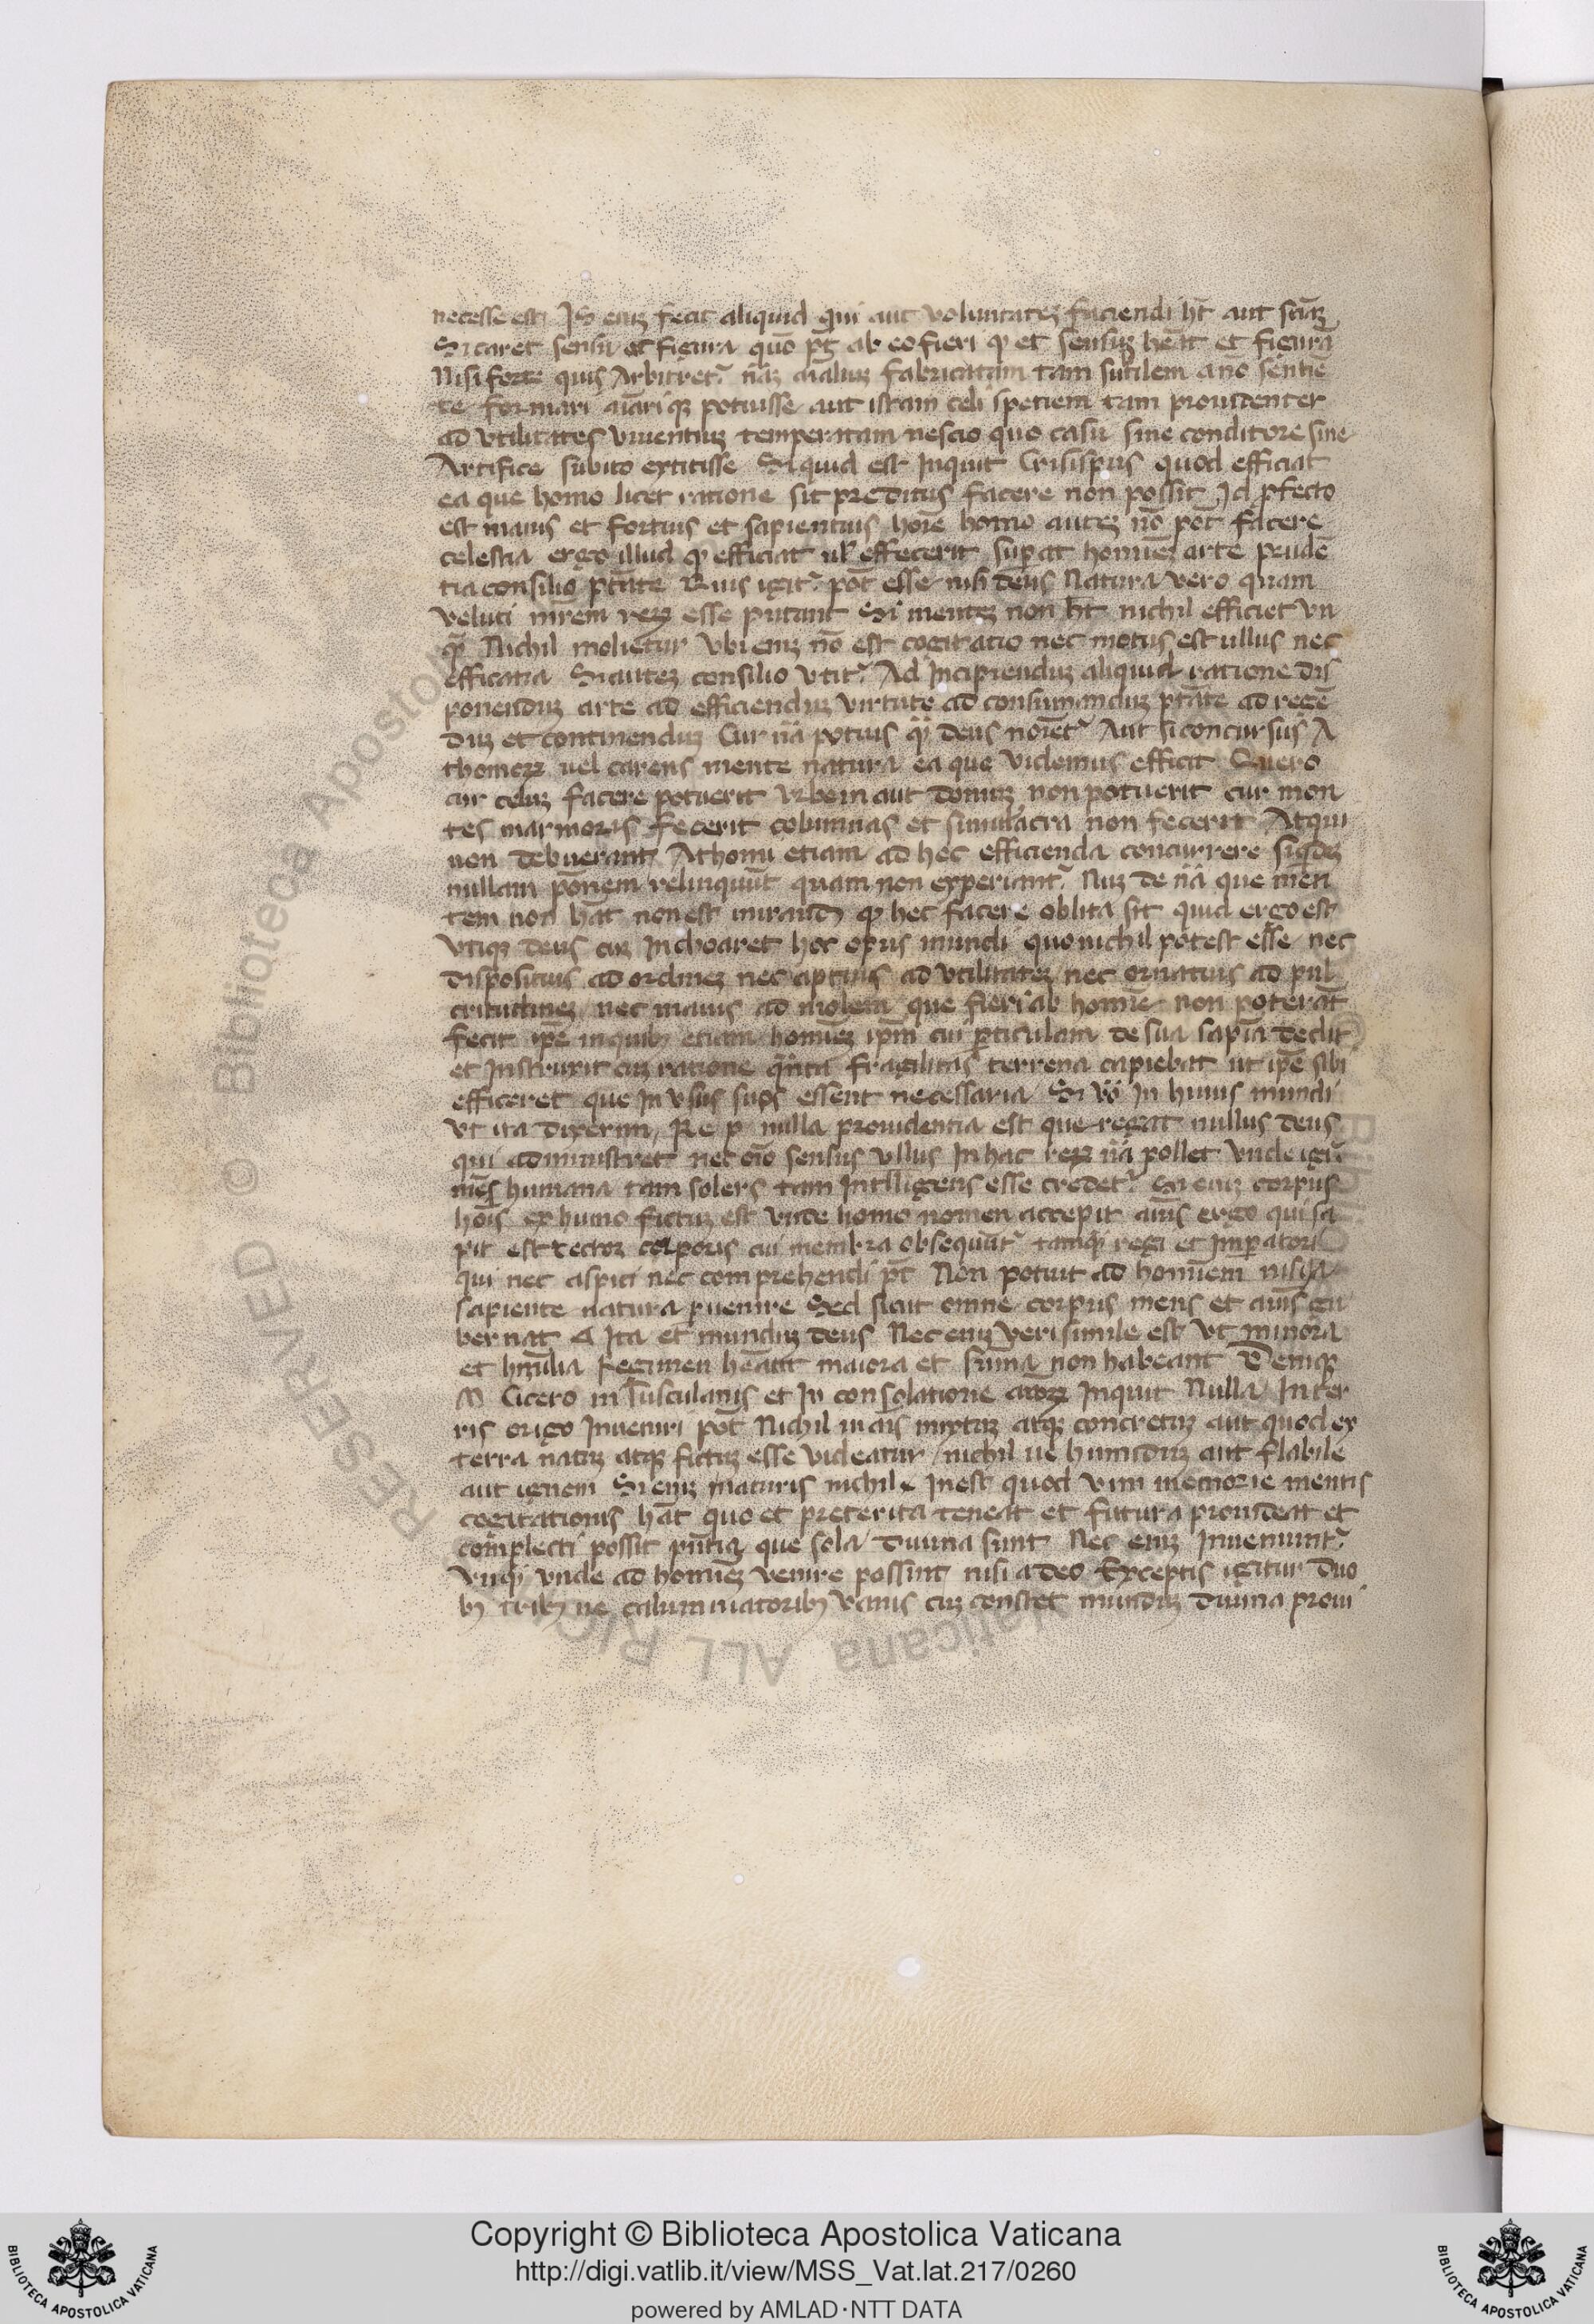 necesse est Is enĩ fecit aliquid qui aut voluntateȝ faciendi h̃t aut sciãȝ
Si caret sensu ac figura quõ põt ab eo fieri qď et sensuȝ hẽat et figurã
Nisi forte quis Arbitret̃ nãȝ aĩaliuȝ fabricatam tam subtilem a nõ sentiẽ
te formari aĩariqȝ potuisse aut istam celi spetiem tam prouidenter
ad vtilitates viuentiuȝ temperatam nescio quo casu sine conditore sine
Artifice subito extitisse Si quid est Inquit Crisispus quod efficiat
ea que homo licet ratione sit preditus facere non possit Id pfecto
est maius et fortius et sapientius hoĩe homo auteȝ nõ põt facere
celestia ergo illud qď efficiat uł effecerit supat homineȝ arte prudẽ
tia consilio ptãte Quis igit̃ põt esse nisi deus Natura vero quam
veluti mr̃em reȝ esse putant Si menteȝ non h̃t nichil efficiet vn
q̃ Nichil molietur vbi enĩ nõ est cogitatio nec motus est ullus nec
efficatia Si auteȝ consilio vtit̃ Ad Incipienduȝ aliquid ratione dis
ponenduȝ arte ad efficienduȝ virtute ad consumanduȝ ptãte ad regẽ
duȝ et continenduȝ Cur nã potius q̃ deus noĩet̃ Aut si concursus A
thomoȝ uel carens mente natura ea que videmus efficit Quero
cur celuȝ facere potuerit vrbem aut domuȝ non potuerit cur mon
tes marmoris fecerit columnas et simulacra non fecerit Atqui
non debuerant Athomi etiam ad hec efficienda concurrere siqdeȝ
nullam põnem relinquũt quam non experiant̃ Naȝ de nã que men
tem non hẽat non est mirand qď hec facere oblita sit quid ergo est
vtiqȝ deus cuȝ Inchoaret hoc opus mundi quo nichil potest esse nec
dispositius ad ordineȝ nec aptius ad vtilitateȝ nec ornatius ad pul
critudineȝ nec maius ad molem que fieri ab homĩe non poterãt
fecit ipẽ in quibȝ etiam homineȝ ip̃m cui pticulam de sua sapĩa dedit
et Instruxit cuȝ ratione q̃nta fragilitas terrena capiebat ut ipẽ sibi
efficeret que In vsus suos essent necessaria Si vo In huius mundi
vt ita dixerim Re p nulla prouidentia est que regat nullus deus
qui administret nec oĩo sensus vllus In hac reȝ nã pollet vnde igit̃
mẽs humana tam solers tam Intelligens esse credet̃ Si enĩ corpus
hoĩs ex humo fictuȝ est vnde homo nomen accepit aĩus ergo qui sa
pit est rector corporis cui membra obsequũt̃ tamq̃ regi et Imperatori
qui nec aspici nec comprehendi põt Non potuit ad hominem nisi a
sapiente natura puenire Sed sicut omne corpus mens et aĩus gu
bernat Ita et munduȝ deus Nec enĩ verisimile est vt minora
et humilia Regimen hẽant maiora et summa non habeant Deniqȝ
M Cicero in Tusculanis et In consolatione Inquit Nulla In ter
ris origo Inueniri põt Nichil in aĩs mixtuȝ atqȝ concretuȝ aut quod ex
terra natuȝ atqȝ fictuȝ esse videatur nichil ue humiduȝ aut flabile
aut ignem Si enĩ naturis nichil Inest quod vim memorie mentis
cogitationis hãt quo et preterita teneat et futura prouideat et
complecti possit pñtia que sola diuina sunt Nec enĩ Inueniunt̃
vnq̃ vnde ad homineȝ venire possint nisi a deo Exceptis igitur duo
bȝ tribȝ ue calumniatoribȝ vanis cuȝ constet munduȝ diuina proui
Copyright © Biblioteca Apostolica Vaticana
http://digi.vatlib.it/view/MSS_Vat.lat.217/0260
powered by AMLAD·NTT DATA
BIBLIOTECA APOSTOLICA VATICANA
BIBLIOTECA APOSTOLICA VATICANA